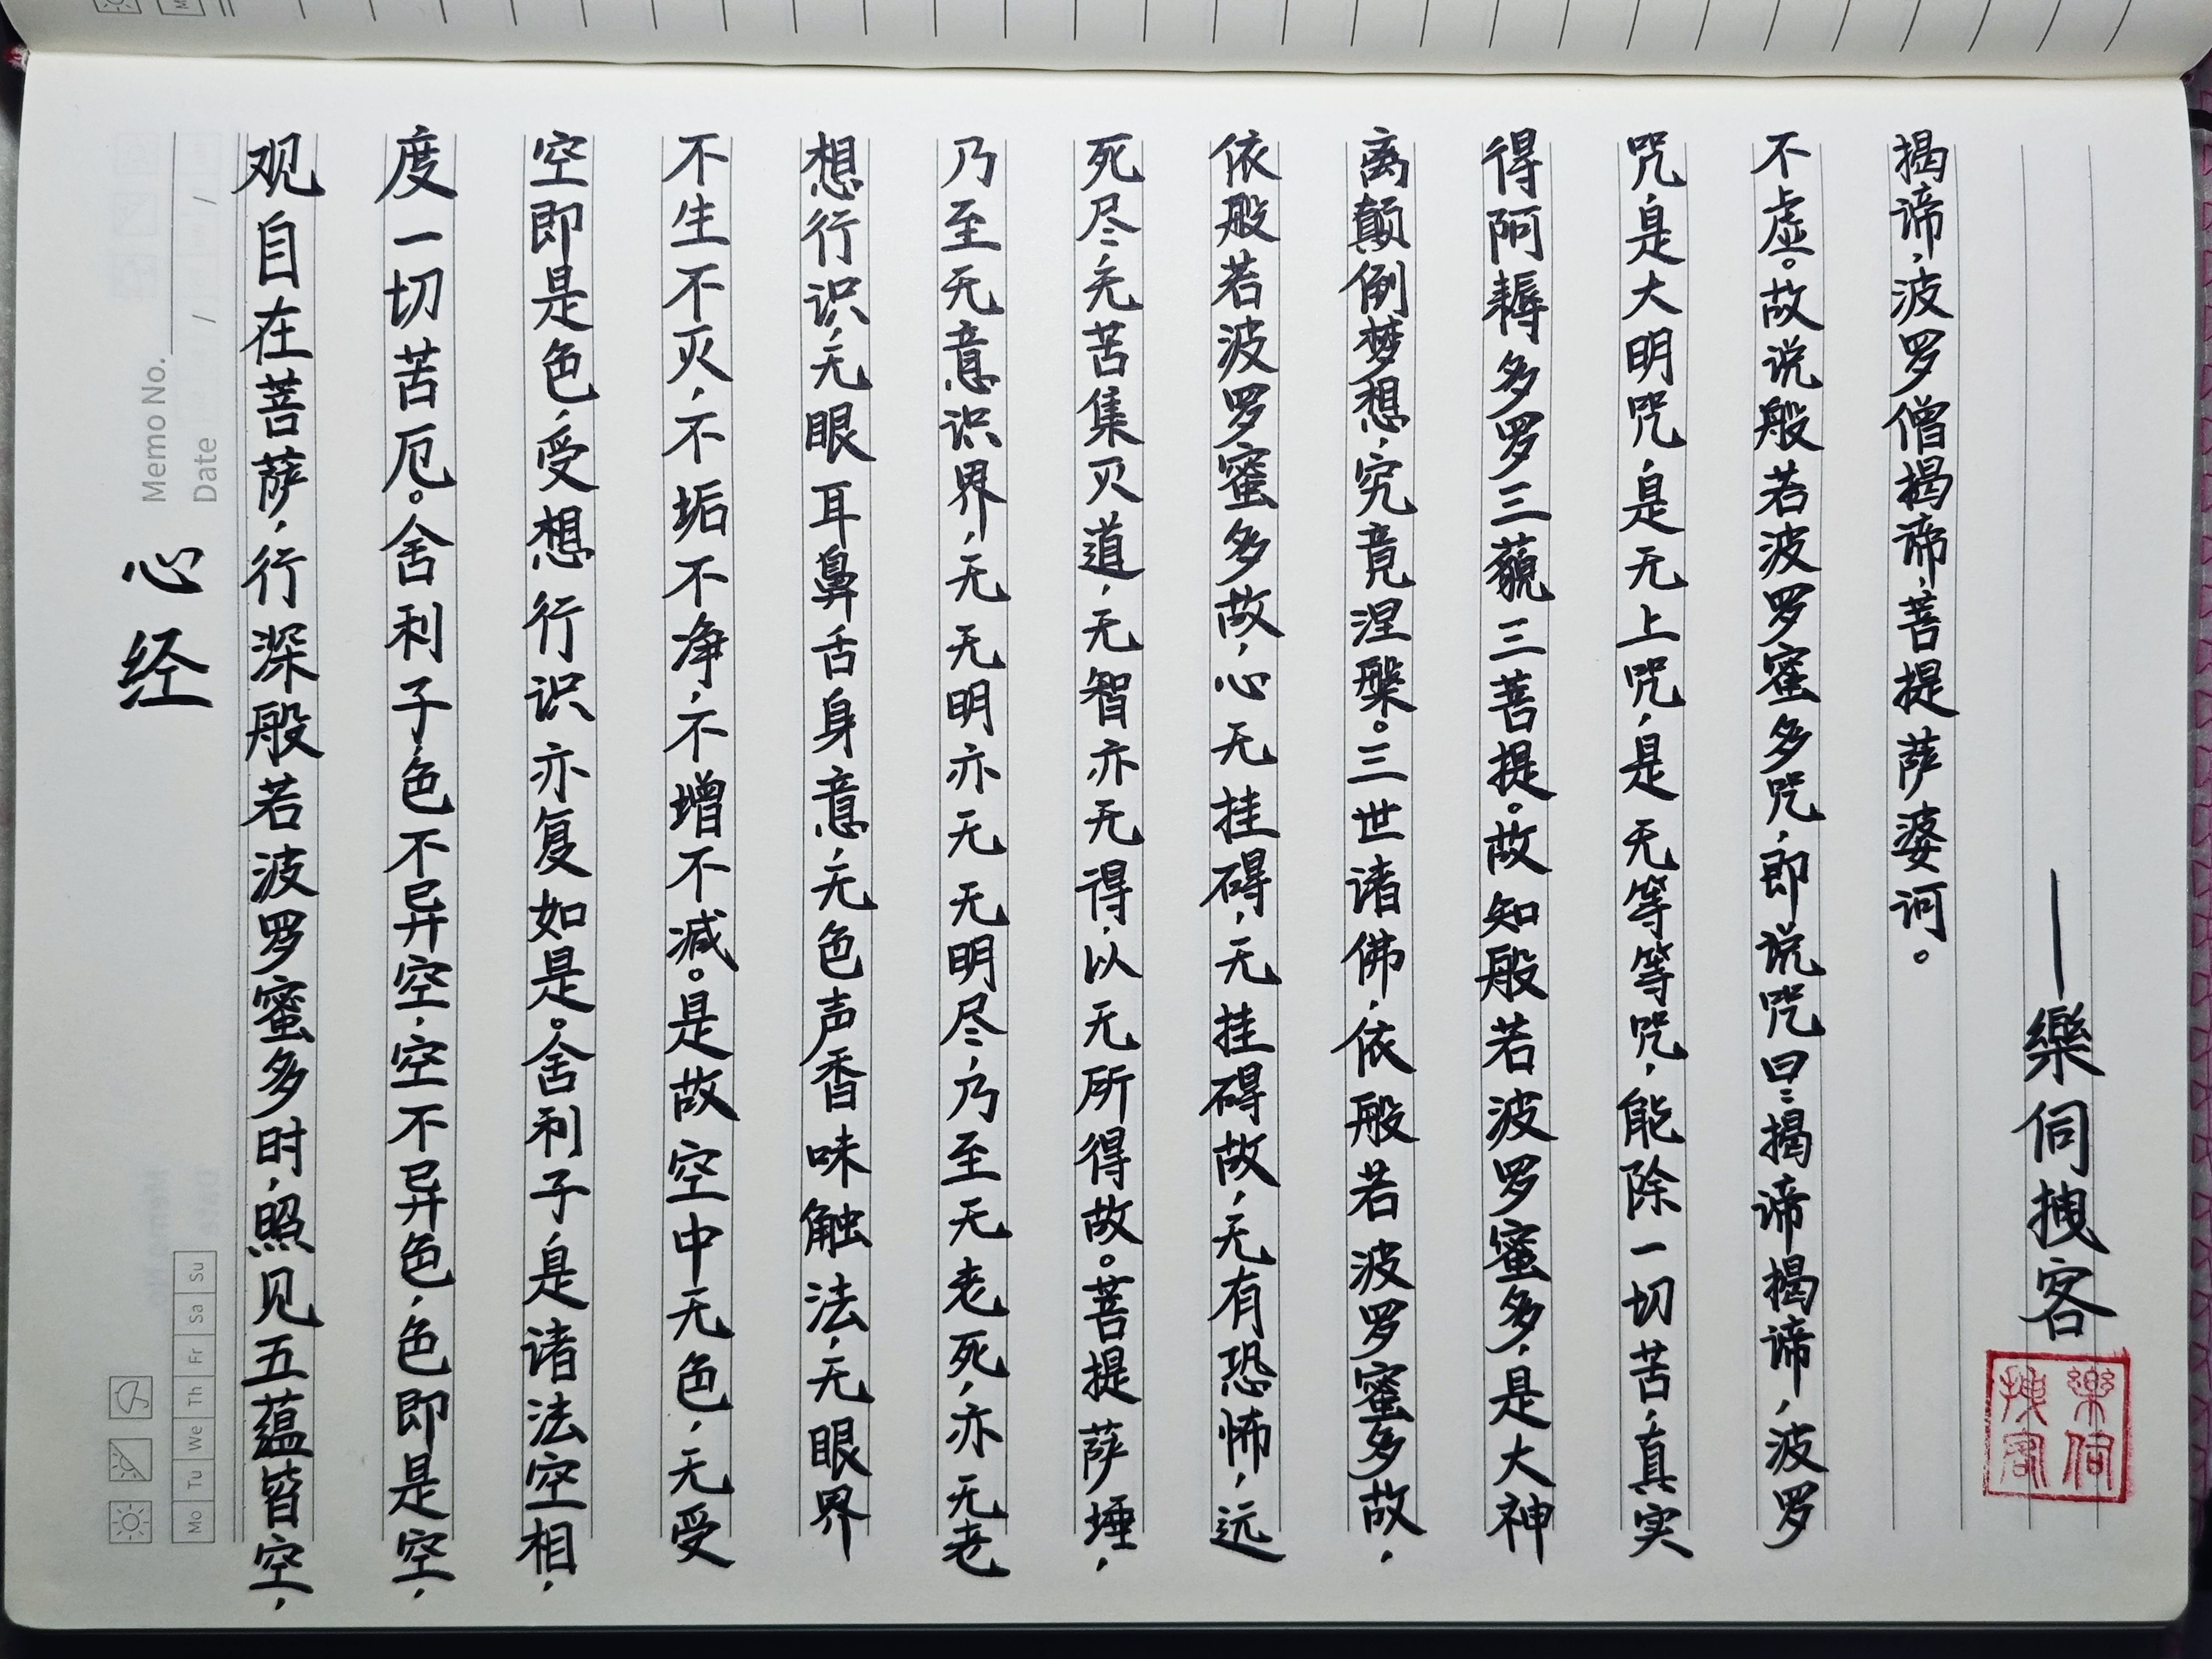 Memo No.
Date / /
Mo Tu We Th Fr Sa Su
心经
观自在菩萨，行深般若波罗蜜多时，照见五蕴皆空，
度一切苦厄。舍利子，色不异空，空不异色，色即是空，
空即是色，受想行识亦复如是。舍利子是诸法空相，
不生不灭，不垢不净，不增不减。是故空中无色，无受
想行识，无眼耳鼻舌身意，无色声香味触法，无眼界
乃至无意识界，无无明亦无无明尽，乃至无老死，亦无老
死尽，无苦集灭道，无智亦无得，以无所得故。菩提萨埵，
依般若波罗蜜多故，心无挂碍，无挂碍故，无有恐怖，远
离颠倒梦想，究竟涅槃。三世诸佛，依般若波罗蜜多故，
得阿耨多罗三藐三菩提。故知般若波罗蜜多，是大神
咒是大明咒，是无上咒，是无等等咒，能除一切苦，真实
不虚。故说般若波罗蜜多咒，即说咒曰：揭谛揭谛，波罗
揭谛，波罗僧揭谛，菩提萨婆诃。
——樂伺拽客
樂伺
拽客